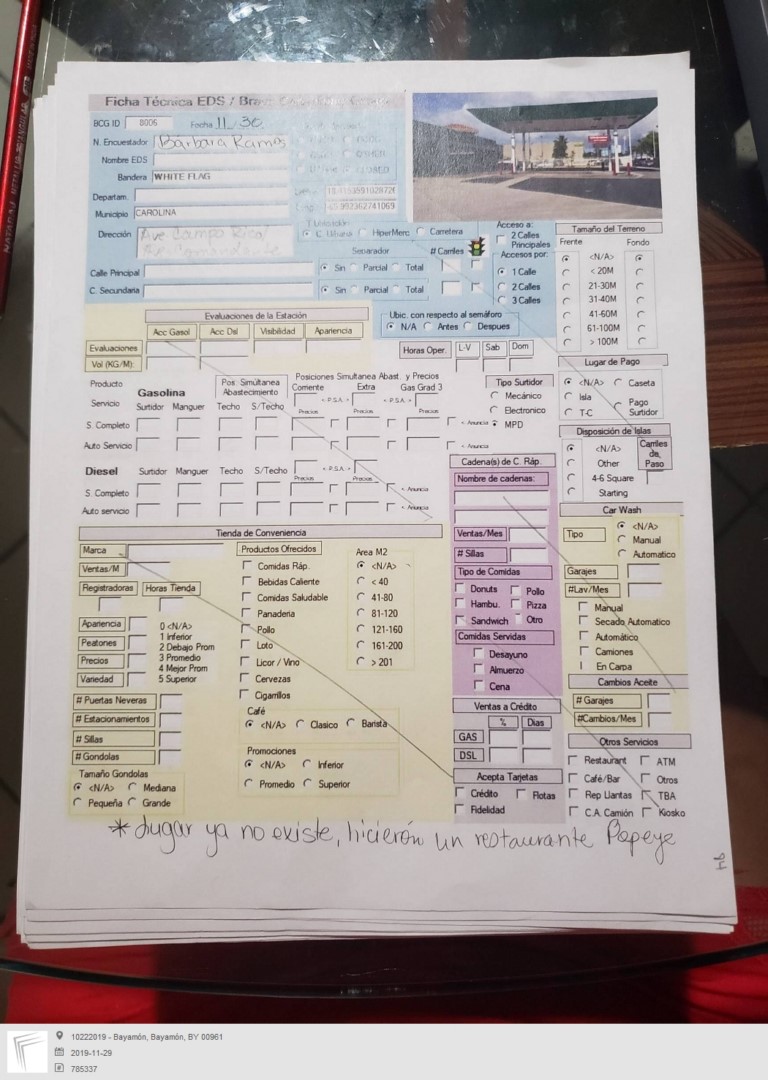 Ficha Técnica EDS /
BCG ID 8006 Fecha 11/30
N. Encuestador Bárbara Ramos
Nombre EDS
Bandera WHITE FLAG
Departam.
Municipio CAROLINA
Dirección Ave Campo Rico/
C. Urbano HiperMerc Carretera
Separador # Carriles
Calle Principal Sin Parcial Total
C. Secundaria Sin Parcial Total
Acceso a:
2 Calles
Principales
Accesos por:
1 Calle
2 Calles
3 Calles
Tamaño del Terreno
Frente Fondo
<N/A>
< 20M
21-30M
31-40M
41-60M
61-100M
> 100M
Evaluaciones de la Estación
Acc Gasol Acc Dsl Visibilidad Apariencia
Evaluaciones
Vol (KG/M):
Ubic. con respecto al semáforo
N/A Antes Despues
Horas Oper. L-V Sab Dom
Lugar de Pago
<N/A> Caseta
Isla Pago
T-C Surtidor
Producto Gasolina Pos. Simultánea
Abastecimiento
Posiciones Simultanea Abast. y Precios
Corriente Extra Gas Grad 3
< P.S.A. > < P.S.A. >
Servicio Surtidor Manguer Techo S/Techo Precios Precios Precios
S. Completo < Anuncia
Auto Servicio < Anuncia
Tipo Surtidor
Mecánico
Electronico
MPD
Disposición de Islas
<N/A>
Other
4-6 Square
Starting
Carriles
de
Paso
Diesel Surtidor Manguer Techo S/Techo < P.S.A. >
Precios Precios
S. Completo < Anuncia
Auto servicio < Anuncia
Cadena(s) de C. Ráp.
Nombre de cadenas:
Ventas/Mes
# Sillas
Tipo de Comidas
Donuts Pollo
Hambu. Pizza
Sandwich Otro
Comidas Servidas
Desayuno
Almuerzo
Cena
Car Wash
Tipo <N/A>
Manual
Automatico
Garajes
#Lav/Mes
Manual
Secado Automatico
Automático
Camiones
En Carpa
Cambios Aceite
# Garajes
#Cambios/Mes
Tienda de Conveniencia
Marca
Ventas/M
Registradoras Horas Tienda
Apariencia
Peatones
Precios
Variedad
0 <N/A>
1 Inferior
2 Debajo Prom
3 Promedio
4 Mejor Prom
5 Superior
# Puertas Neveras
# Estacionamientos
# Sillas
# Gondolas
Tamaño Gondolas
<N/A> Mediana
Pequeña Grande
Productos Ofrecidos
Comidas Ráp.
Bebidas Caliente
Comidas Saludable
Panaderia
Pollo
Loto
Licor / Vino
Cervezas
Cigarrillos
Area M2
<N/A>
< 40
41-80
81-120
121-160
161-200
> 201
Café
<N/A> Clasico Barista
Promociones
<N/A> Inferior
Promedio Superior
Ventas a Crédito
% Dias
GAS
DSL
Acepta Tarjetas
Crédito Flotas
Fidelidad
Otros Servicios
Restaurant ATM
Café/Bar Otros
Rep Llantas TBA
C.A. Camión Kiosko
* Lugar ya no existe, hicierón un restaurante Popeye
94
10222019 - Bayamón, Bayamón, BY 00961
2019-11-29
785337